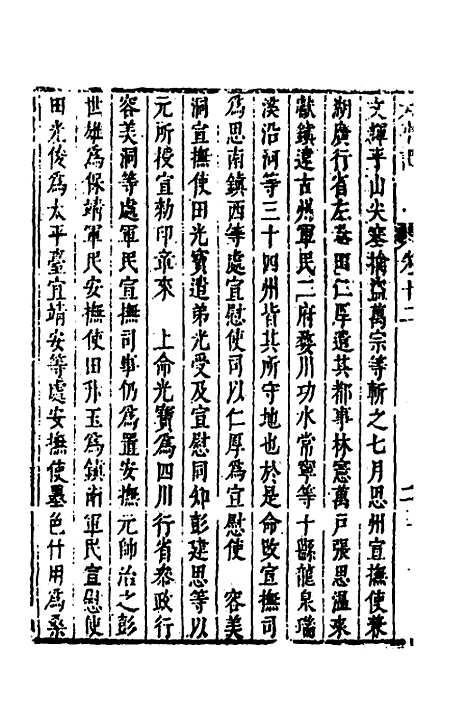 文輝平山尖寨擒盜萬宗等斬之七月思州宣撫使兼
湖廣行省左丞田仁厚遣其都事林憲萬戶張思溫來
獻鎮遠古州軍民二府婺川功水常寧等十縣龍泉瑞
溪沿河等三十四州皆其所守地也於是命改宣撫司
為思南鎮西等處宣慰使司以仁厚為宣慰使　容美
洞宣撫使田光寶遣弟光受及宣慰同知彭建思等以
元所授宣勅印章來　上命光寶為四川行省叅政行
容美洞等處軍民宣撫司事仍為置安撫元帥治之彭
世雄為保靖軍民安撫使田升玉為鎮南軍民宣慰使
田光俊為太平臺宜靖安等處安撫使墨色什用為桑